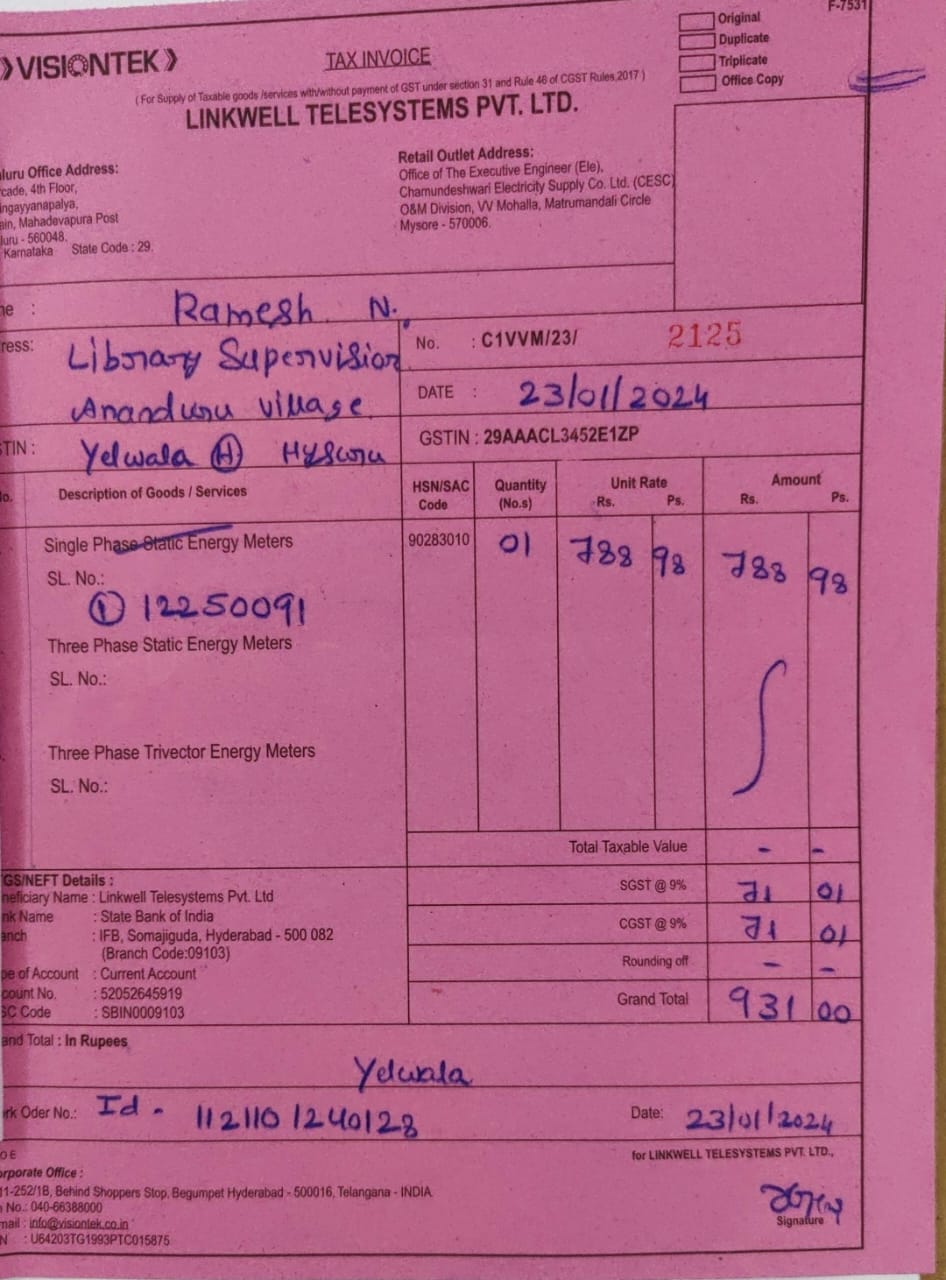 F-7531
Original
Duplicate
Triplicate
Office Copy
VISIONTEK
TAX INVOICE
( For Supply of Taxable goods /services with/without payment of GST under section 31 and Rule 46 of CGST Rules,2017 )
LINKWELL TELESYSTEMS PVT. LTD.
luru Office Address:
cade, 4th Floor,
ngayyanapalya,
ain, Mahadevapura Post
luru - 560048.
Karnataka State Code : 29.
Retail Outlet Address:
Office of The Executive Engineer (Ele),
Chamundeshwari Electricity Supply Co. Ltd. (CESC)
O&M Division, VV Mohalla, Matrumandali Circle
Mysore - 570006.
ne : Ramesh N.
ress: Library Supervision
Ananduru village
TIN : Yelwala (H) Mysuru
No. : C1VVM/23/ 2125
DATE : 23/01/2024
GSTIN : 29AAACL3452E1ZP
o. Description of Goods / Services HSN/SAC Code Quantity (No.s) Unit Rate Rs. Ps. Amount Rs. Ps.
Single Phase Static Energy Meters 90283010 01 788 98 788 98
SL. No.:
① 12250091
Three Phase Static Energy Meters
SL. No.:
Three Phase Trivector Energy Meters
SL. No.:
Total Taxable Value - -
SGST @ 9% 71 01
CGST @ 9% 71 01
Rounding off - -
Grand Total 931 00
GS/NEFT Details :
neficiary Name : Linkwell Telesystems Pvt. Ltd
nk Name : State Bank of India
anch : IFB, Somajiguda, Hyderabad - 500 082
(Branch Code:09103)
pe of Account : Current Account
count No. : 52052645919
SC Code : SBIN0009103
and Total : In Rupees
Yelwala
rk Oder No.: Id - 112110 1240128 Date: 23/01/2024
O E
for LINKWELL TELESYSTEMS PVT. LTD.,
orporate Office :
11-252/1B, Behind Shoppers Stop, Begumpet Hyderabad - 500016, Telangana - INDIA.
No.: 040-66388000
mail : info@visiontek.co.in
N : U64203TG1993PTC015875
Signature